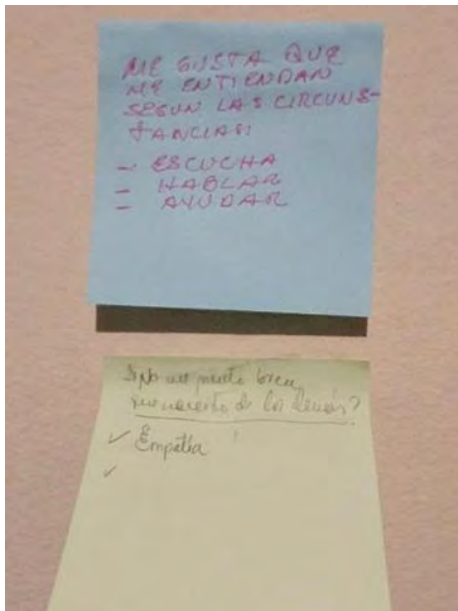 ME GUSTA QUE
ME ENTIENDAN
SEGUN LAS CIRCUNS-
TANCIAS:
- ESCUCHA
- HABLAR
- AYUDAR
Si no me siento bien,
que necesito de los demás?
✓ Empatía
✓